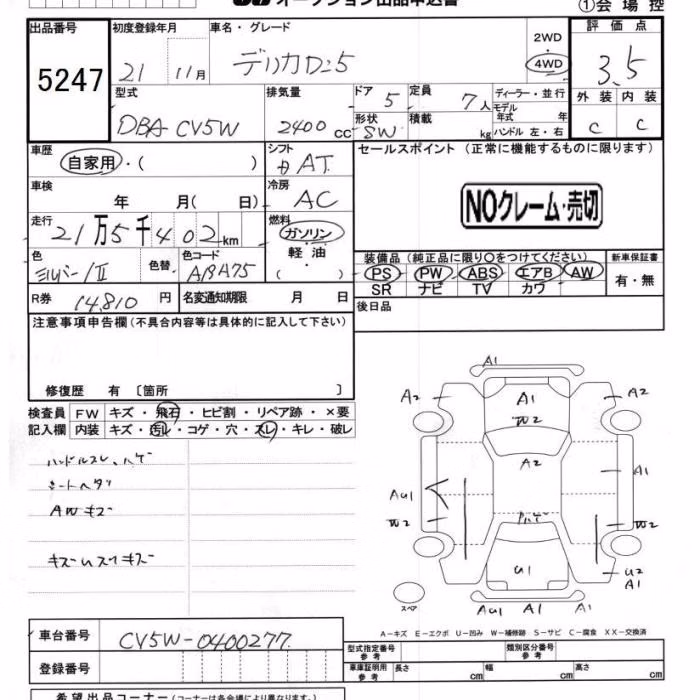 オークション出品申込書
①会場控
出品番号 初度登録年月 車名・グレード 2WD 評価点
5247 21 11月 デリカD:5 4WD 3.5
型式 排気量 ドア 5 定員 7人 ディーラー・並行 外装 内装
DBA-CV5W 2400cc 形状 SW 積載 kg モデル年式 年 ハンドル 左・右 C C
車歴 自家用・( ) シフト AT セールスポイント (正常に機能するものに限ります)
車検 年 月( 日) 冷房 AC NOクレーム・売切
走行 21万5千402km 燃料 ガソリン 軽油 ( )
装備品 (純正品に限り○をつけてください) 新車保証書
色 シルバー/II 色替 色コード ABA75 PS PW ABS エアB AW 有・無
SR ナビ TV カワ
R券 14,810円 名変通知期限 月 日 後日品
注意事項申告欄 (不具合内容等は具体的に記入して下さい)
修復歴 有 〔箇所 〕
検査員 FW キズ・飛石・ヒビ割・リペア跡・×要
記入欄 内装 キズ・汚レ・コゲ・穴・スレ・キレ・破レ
ハンドルスレ、ハゲ
シートヘタリ
AWキズ
A1
A2 A1 A2
W2
A2
AU1 A1
W2 ハゲ W2
U1 U2
A1
スペア AU1 A1 A1
A-キズ E-エクボ U-凹み W-補修跡 S-サビ C-腐食 XX-交換済
車台番号 CV5W-0400277
型式指定番号 参考 類別区分番号 参考
登録番号 車庫証明用 参考 長さ cm 幅 cm 高さ cm
希望出品コーナー (コーナーは各会場により異なります。)